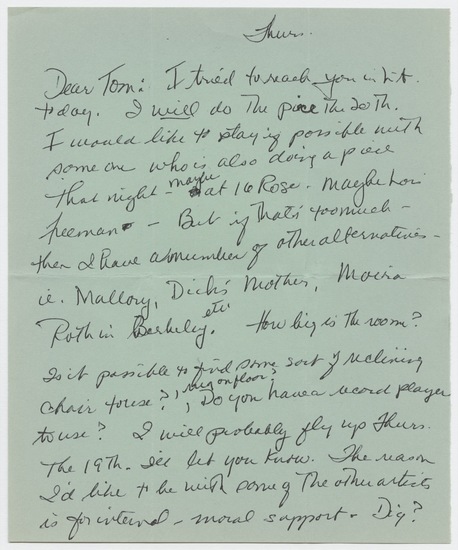 Thurs.
Dear Tom: I tried to reach you in
today. I will do the piece the 20th.
I would like to stay if possible with
someone who is also doing a piece
maybe
that night - at 16 Rose. Maybe Lori
Freeman - But if that's too much -
then I have a number of other alternatives -
ie. Mallory, Dick's Mother, Moira
Roth in Berkeley, etc. How big is the room?
Is it possible to find some sort of reclining
rug on floor?
chair to use? , Do you have a record player
to use? I will probably fly up Thurs.
the 19th. I'll let you know. The reason
I'd like to be with some of the other artists
is for internal - moral support. Dig?